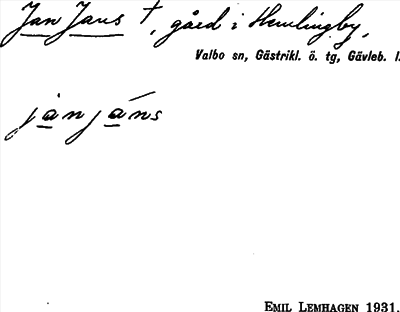 Jan Jans †, gård i Hemlingby,
Valbo sn, Gästrikl. ö. tg, Gävleb. l.
jàn já̱ns
EMIL LEMHAGEN 1931.